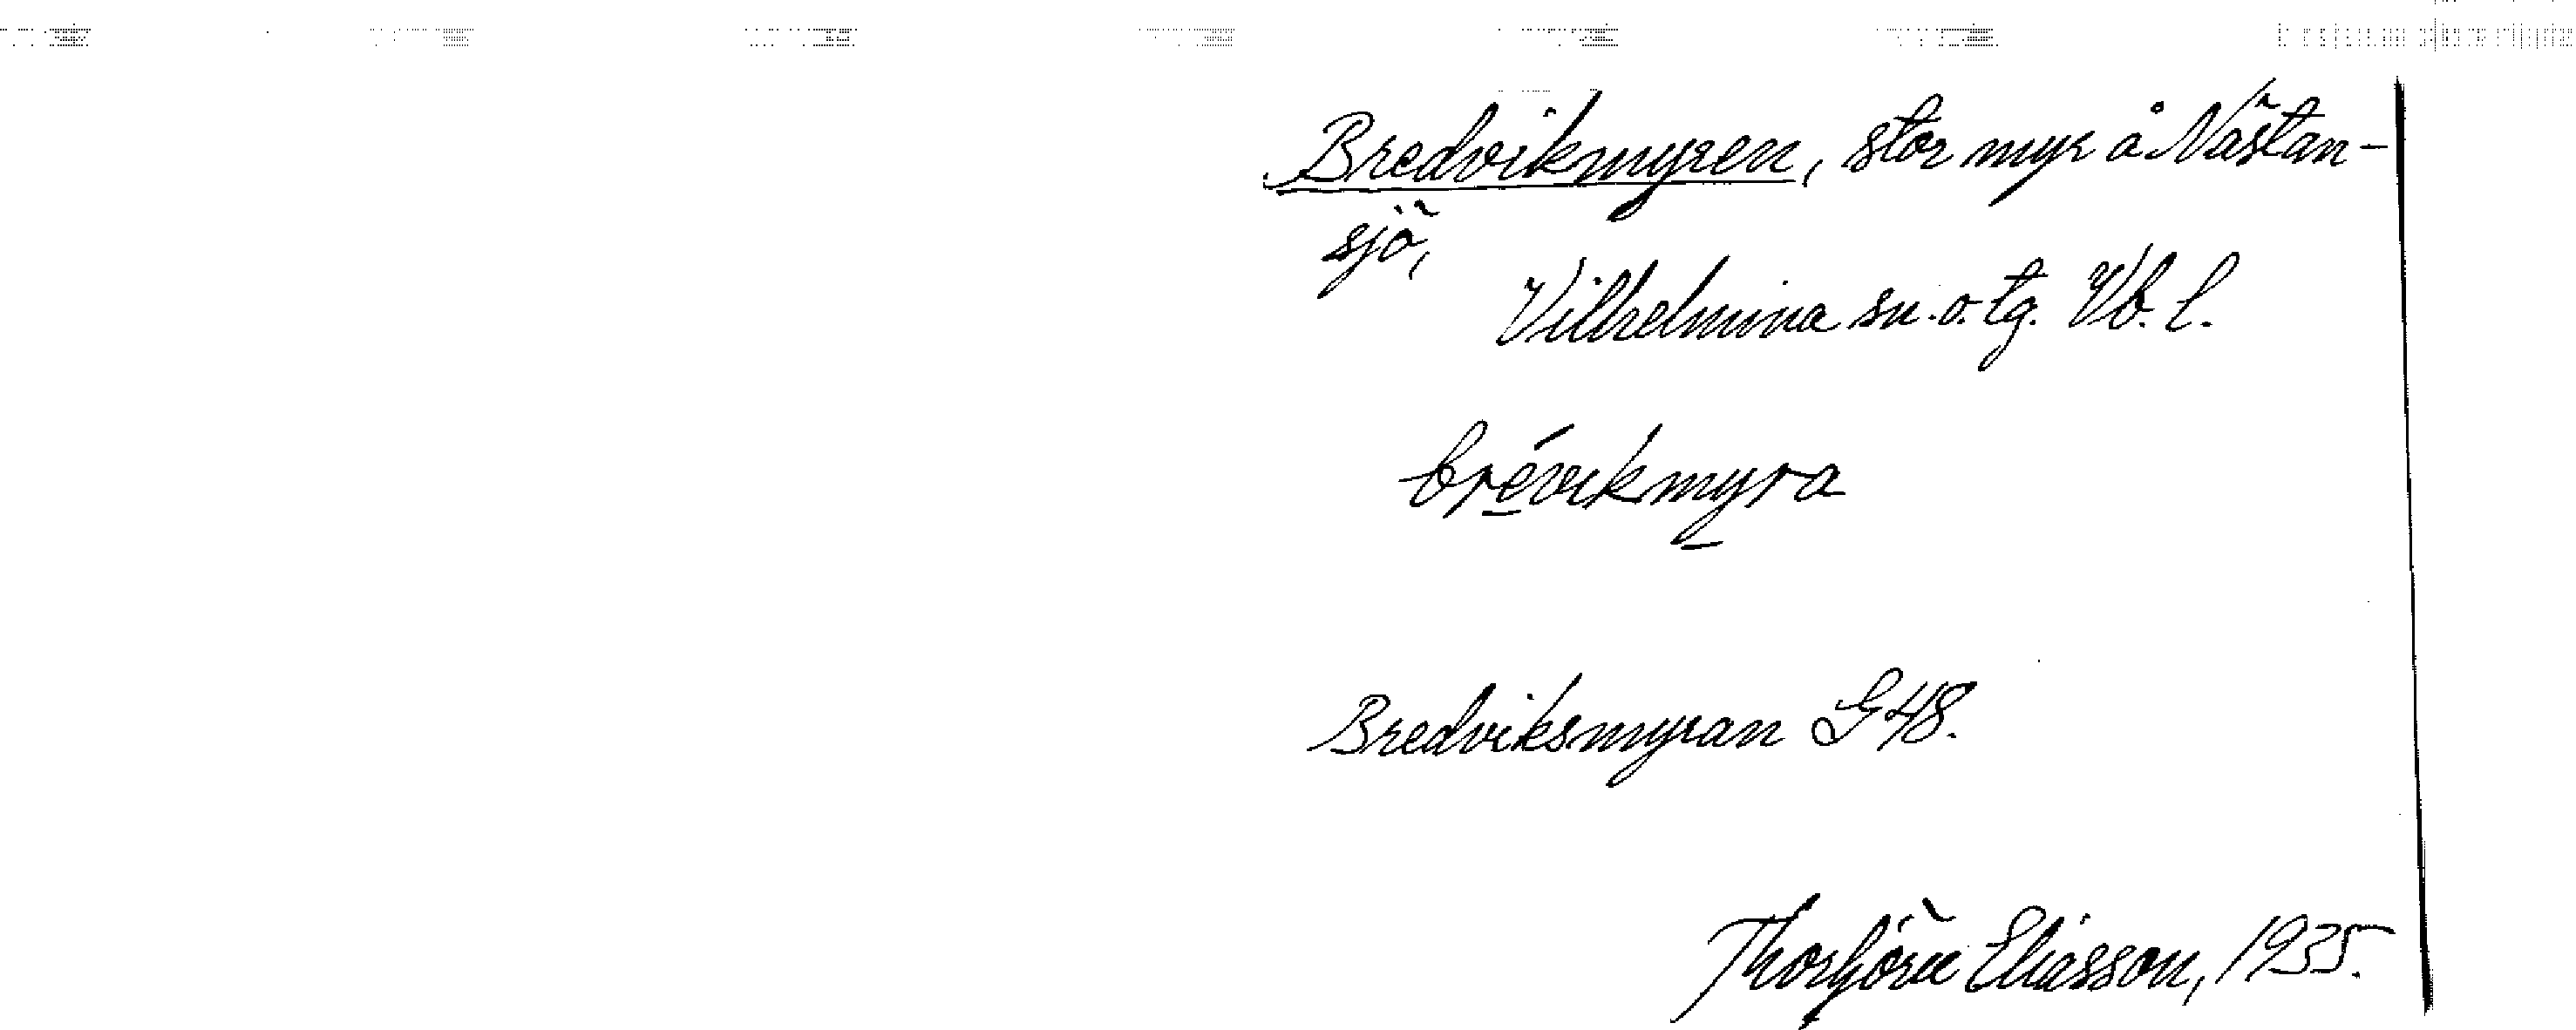 Bredvikmyren, stor myr å Nästan-
sjö,
Vilhelmina sn. o. tg. Vb. l.
brévikmyra
Bredviksmyran G48.
Thorbjörn Eliasson, 1935.